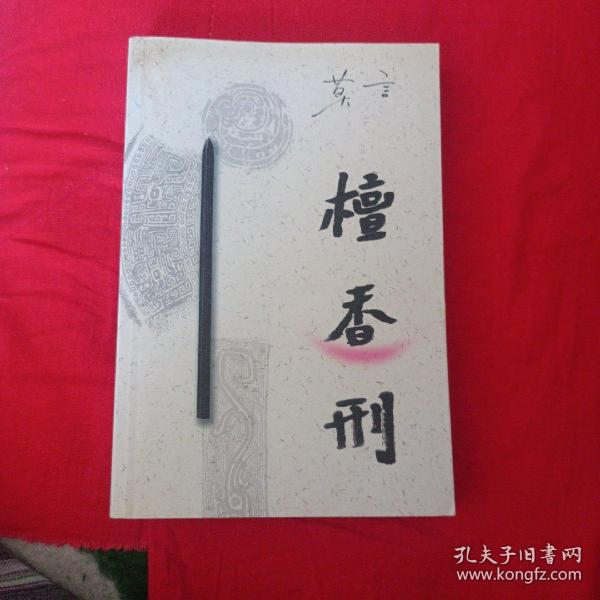 莫言
檀香刑
孔夫子旧書网
www.kongfz.com